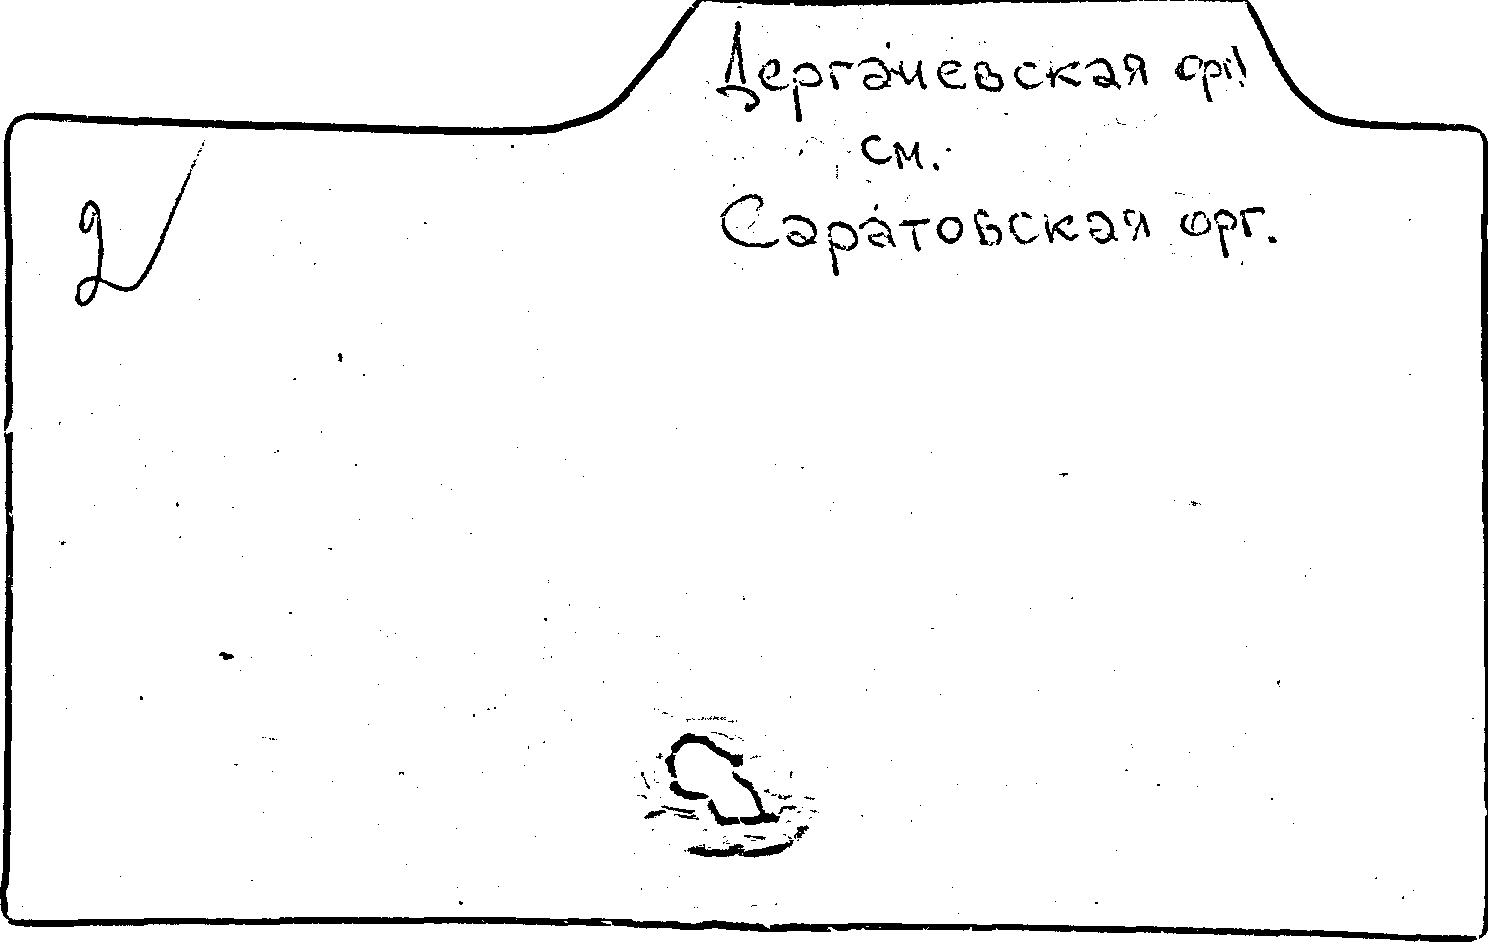 Дергачевская орг.
см.
Саратовская орг.
2